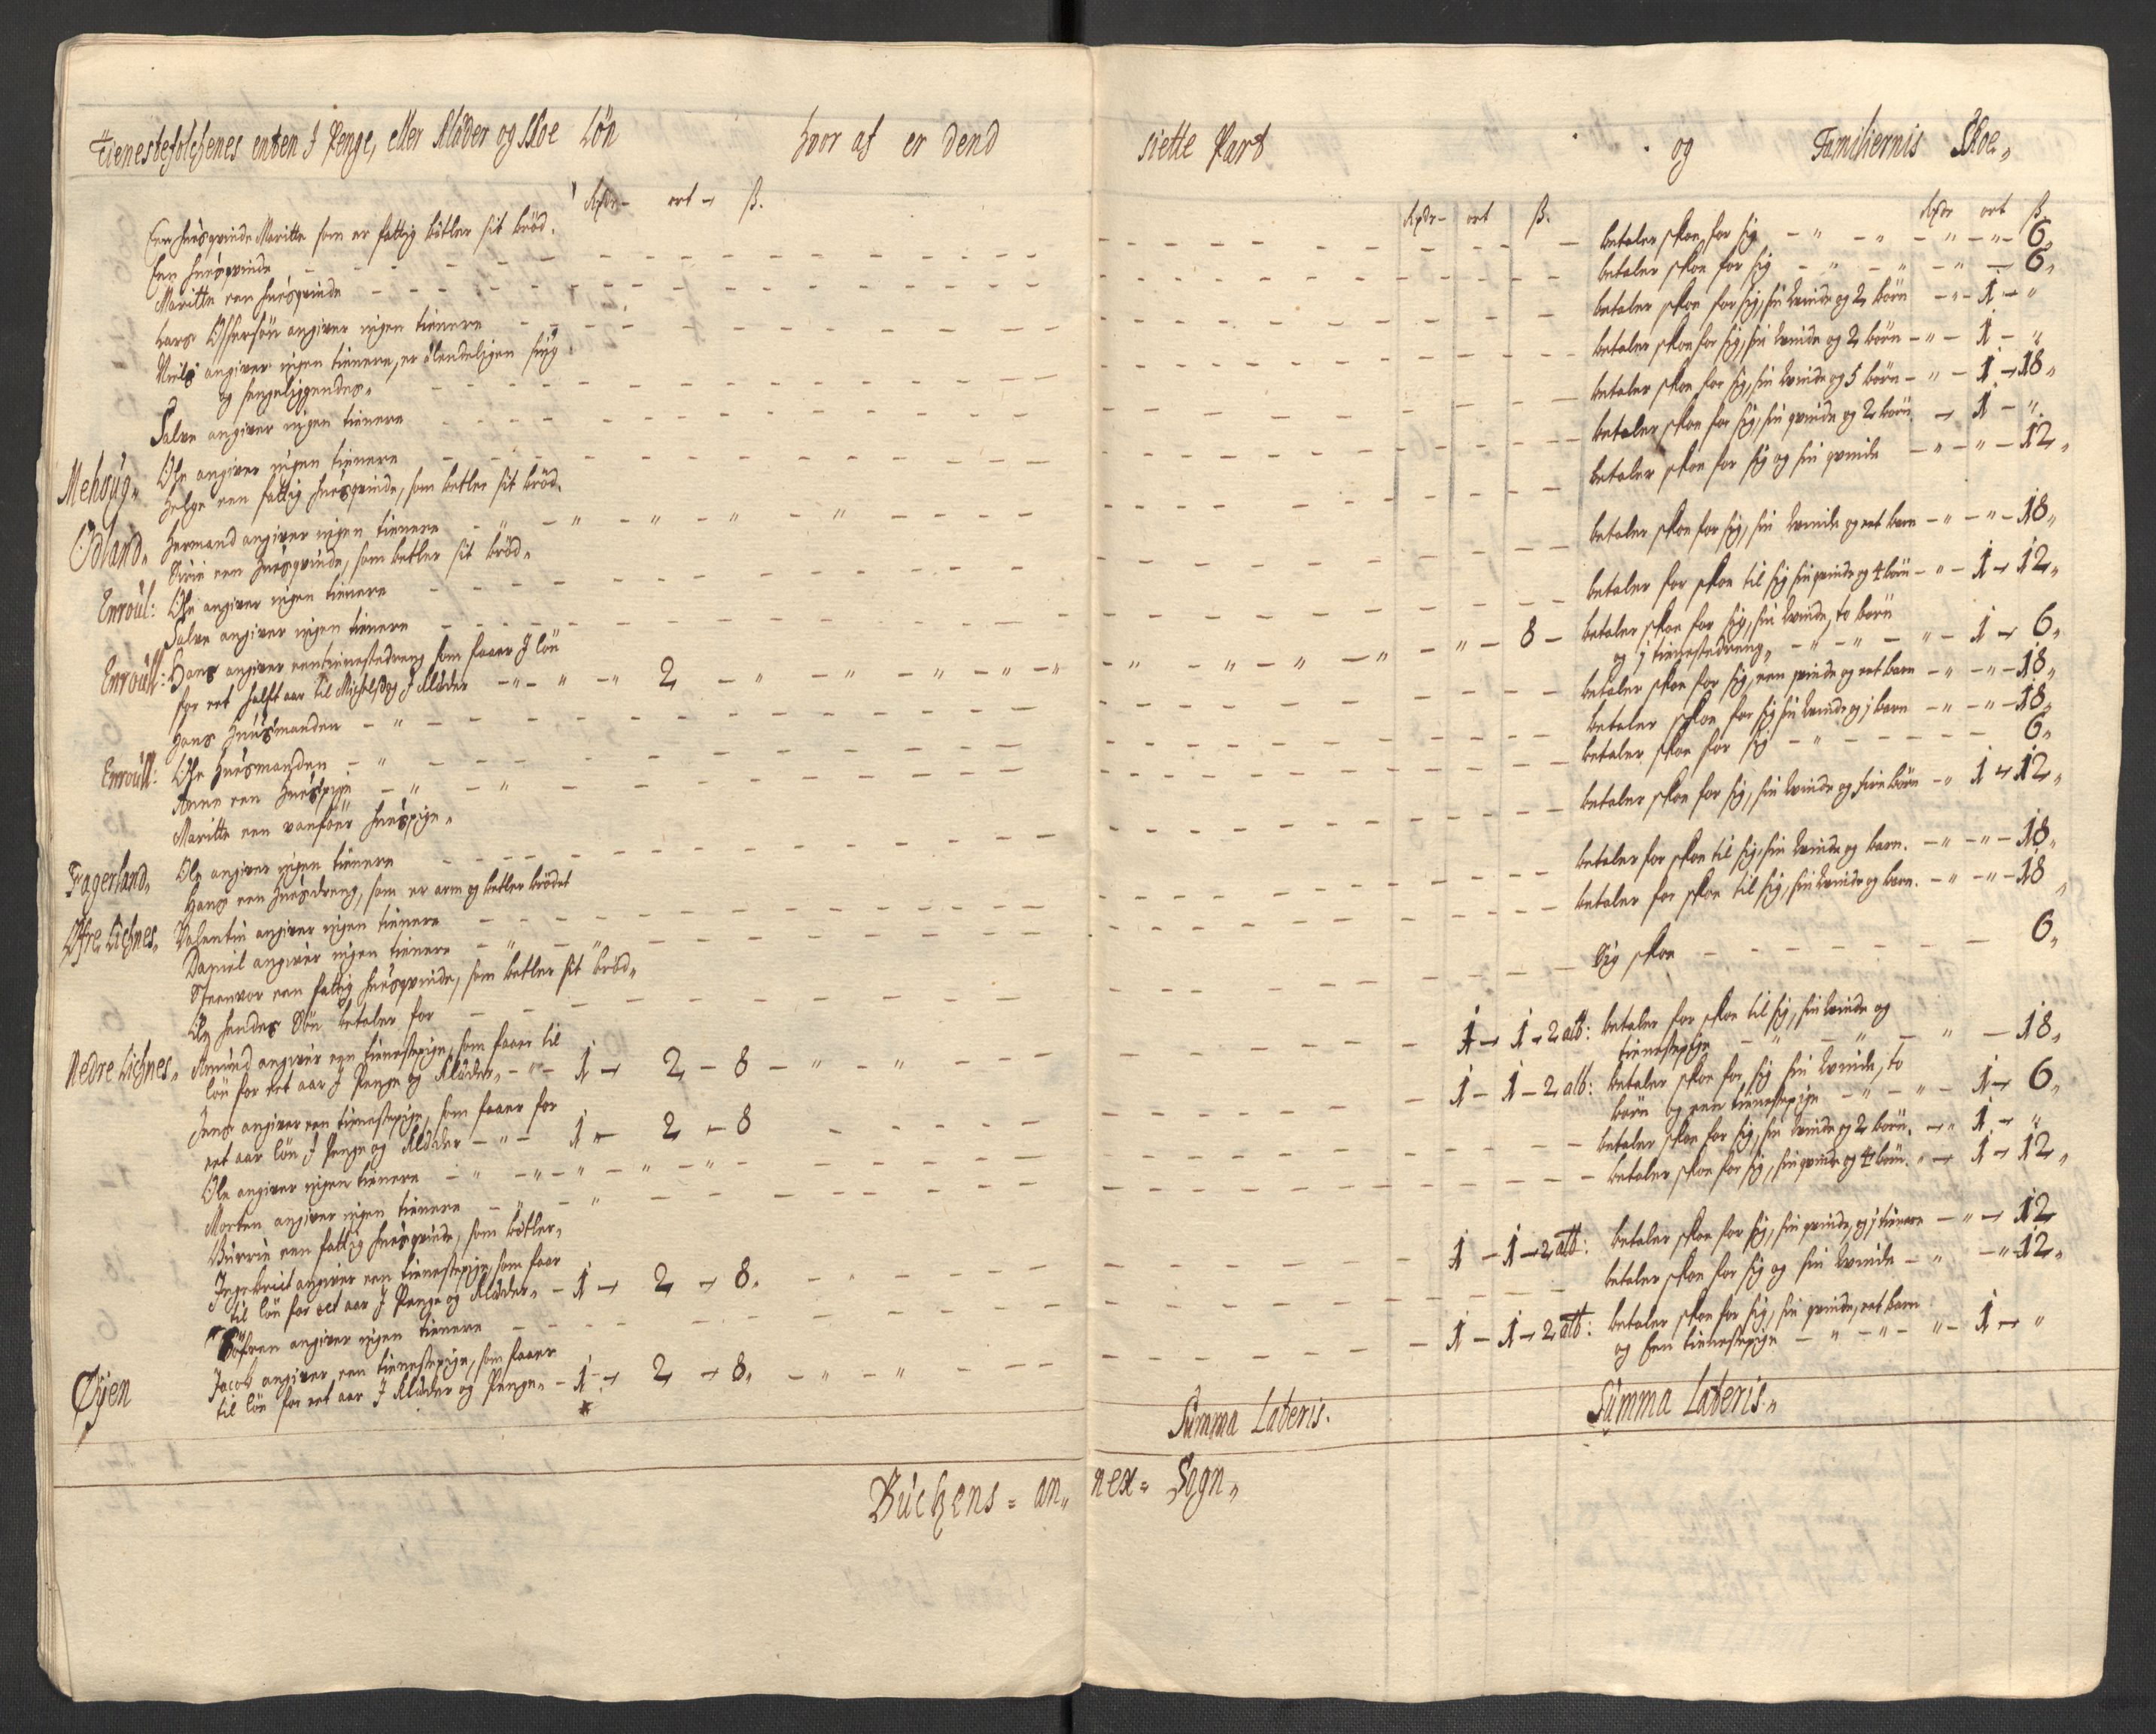 Tienestefolchenes enten I Penge, eller Klæder og Skoe Lön hvor af er dend siette Part og Familiernis Skoe„
Rxdr– ort – ß. Rxdr– ort ß. Rxdr ort ß
Een huusqvinde Maritte som er fattig bétler sit bröd. betaler skoe for sig – „ – „ – „ – „ – 6„
Een huusqvinde betaler skoe for sig – „ – „ – „ – 6„
Maritte een huusqvinde betaler skoe for sig, sin kvinde og 2 börn – „ – 1 – „
Lars Ossersön angiver ingen tienere betaler skoe for sig, sin kvinde og 2 börn – „ – 1 – „
Niels angiver ingen tienere, er ælendeligen siug betaler skoe for sig, sin kvinde og 5 börn – „ – 1 – 18„
og sengeliggendes„
Salve angiver ingen tienere betaler skoe for sig, sin qvinde og 2 börn – 1 – „
Mehoug„ Ole angiver ingen tienere betaler skoe for sig og sin qvinde – „ – „ – 12„
Helge een fattig huusqvinde, som betler sit bröd„
Odland„ Hermand angiver ingen tienere – „ – „ – „ – „ – „ betaler skoe for sig, sin kvinde og eet barn – „ – „ – 18„
Siri een huusqvinde, som betler sit bröd„
Enroul: Ole angiver ingen tienere betaler for skoe til sig sin qvinde og 4 börn – „ – 1 – 12„
Salve angiver ingen tienere
Enroull: Hans angiver een tienestedreng som faaer I lön betaler skoe for sig, sin kvinde, to börn
for eet halft aar til Michelsdag I Klæder – „ – „ – „ 2 – „ – „ – „ – „ – „ – 8 – og j tienestedreng„ – „ – „ – „ – 1 – 6„
Hans huusmanden – „ betaler skoe for sig, een qvinde og eet barn – „ – „ – 18„
Enroull: Ole huusmanden – „ betaler skoe for sig sin kvinde og j barn – „ – „ – 18„
Anne een huuspige – „ – „ betaler skoe for sig – „ – 6„
Maritte een vanför huuspige„
Fagerland„ Ole angiver ingen tienere betaler skoe for sig, sin kvinde og fire börn – „ 1 – 12„
Hans een huusdreng, som er arm og betler brödet
Öfre Lichnes„ Valentin angiver ingen tienere betaler for skoe til sig, sin kvinde og barn. – „ – „ – 18„
Daniel angiver ingen tienere betaler for skoe til sig, sin kvinde og barn. – „ – „ – 18„
Steenvor een fattig huusqvinde, som betler sit bröd„
Ole hendes Sön betaler for sig skoe 6„
Nedre Lichnes„ Amund angiver een tienestepige, som faaer til 1 – 1 – 2 alb: betaler for skoe til sig, sin kvinde og
lön for eet aar I Penge og Klæder„ – „ – 1 – 2 – 8 – „ – „ tienestepige – „ – „ – „ – 18„
Jens angiver een tienestepige, som faaer for 1 – 1 – 2 alb: betaler skoe for sig sin kvinde, to
eet aar lön I Penge og Klæder – „ – 1 – 2 – 8 börn og een tienestepige – „ – „ – 1 – 6„
Ole angiver ingen tienere – „ – „ – „ – „ – „ betaler skoe for sig, sin kvinde og 2 börn. – „ 1 – „
Morten angiver ingen tienere – „ – „ betaler skoe for sig, sin qvinde og 4 börn. „ – 1 – 12„
Birrie een fattig huusqvinde, som bétler„
Ingebrict angiver een tienestepige, som faar
til lön for eet aar I Penge og Klæder„ – 1 – 2 – 8. 1 – 1 – 2 alb: betaler skoe for sig, sin qvinde, og j tienere – „ – 12
Söfren angiver ingen tienere betaler skoe for sig og sin kvinde – „ – „ 12„
Öyen Jacob angiver een tienestepige, som faaer 1 – 1 – 2 alb: betaler skoe for sig, sin qvinde, eet barn
til lön for eet aar I Klæder og Penge„ – 1 – 2 – 8„ – „ – „ og Een tienestepige – „ – „ – „ – 1 – „
Summa Lateris. Summa Lateris„
Buchens = an„ nex = Sogn„